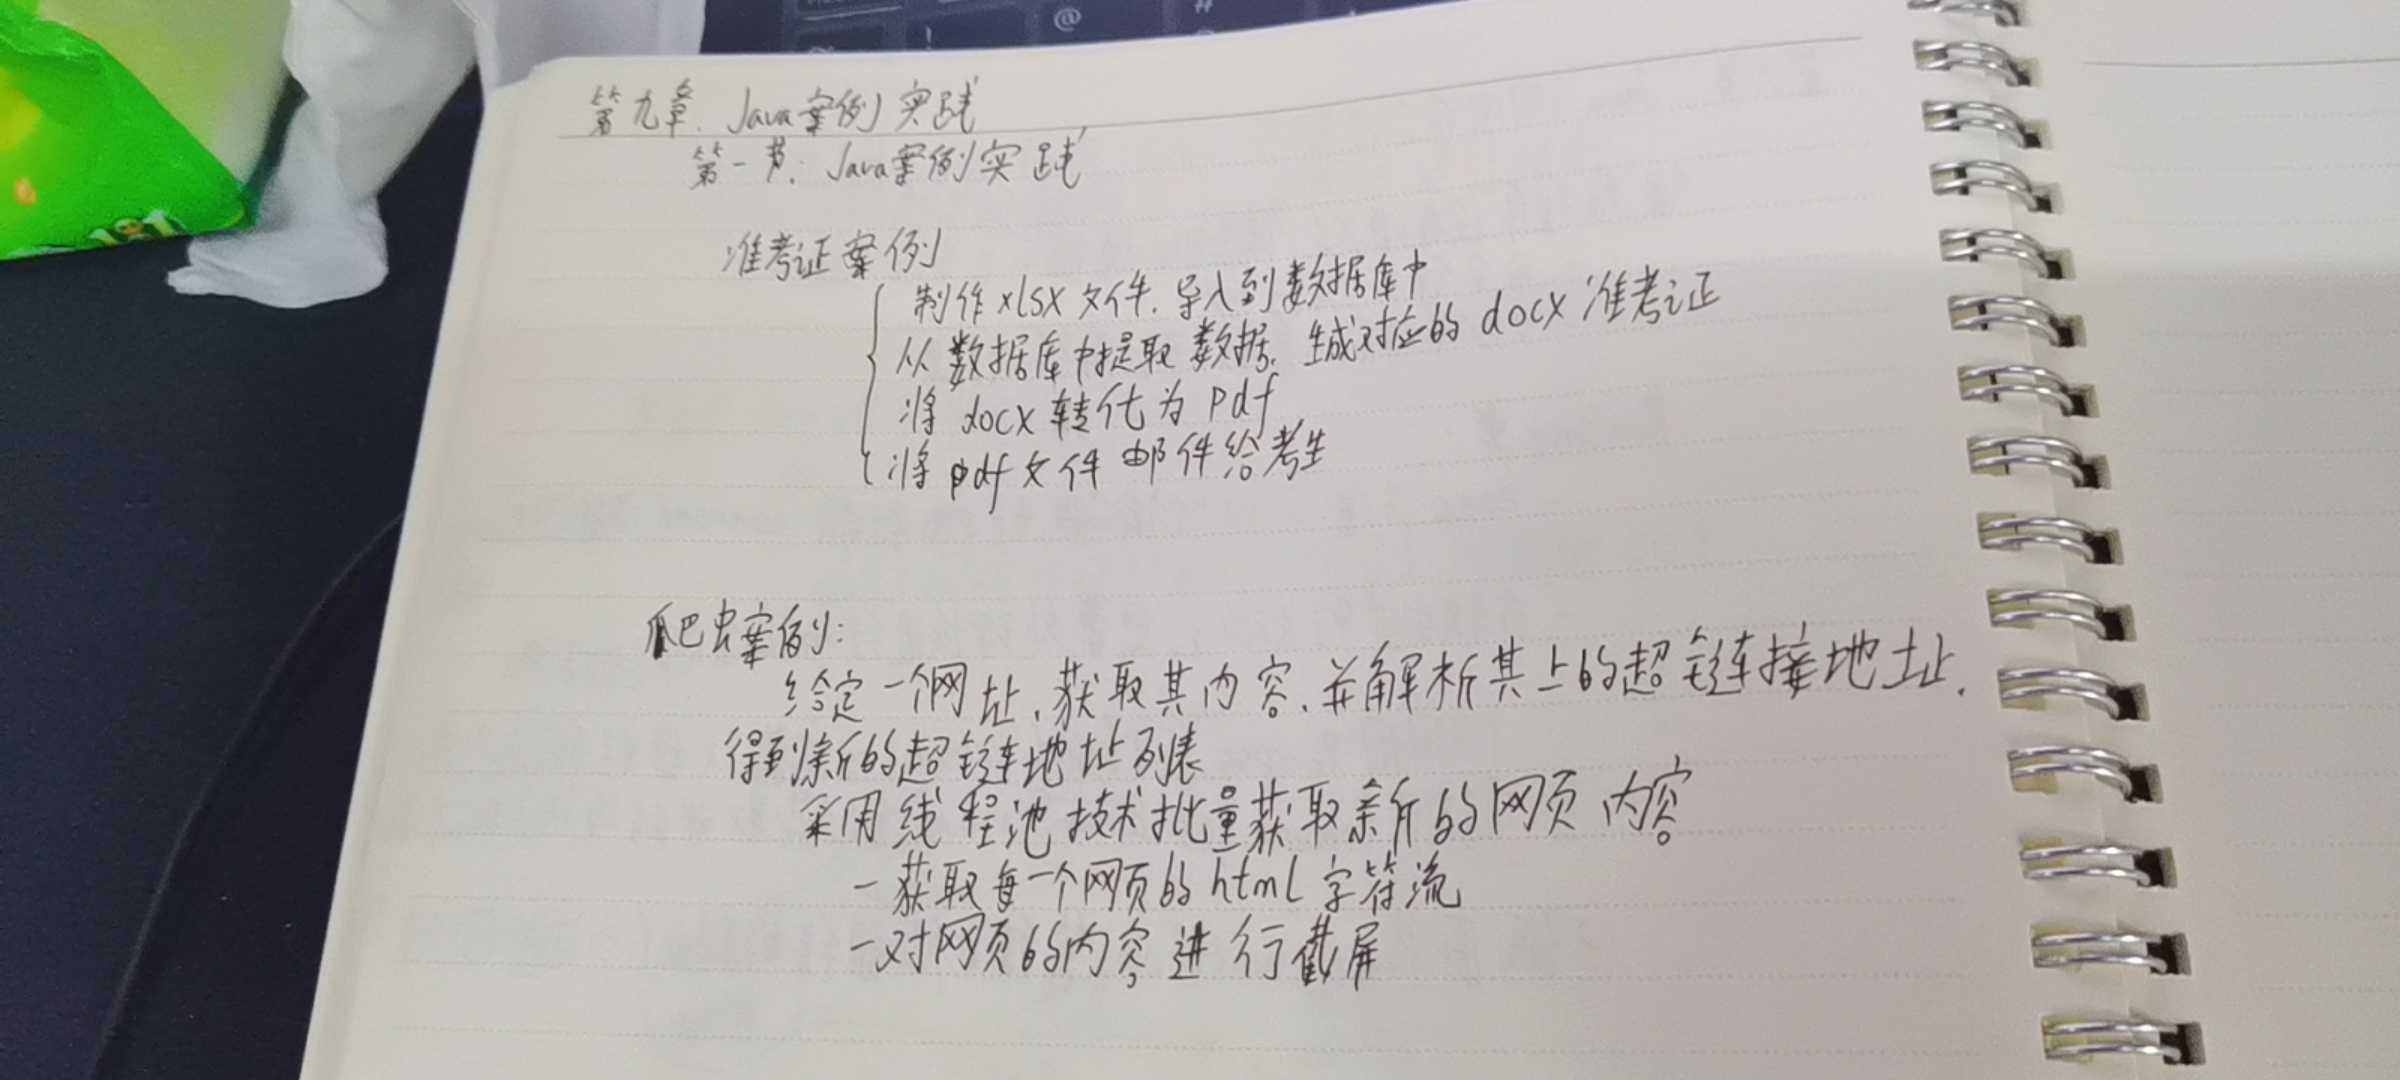 第九章. Java案例实践
第一节: Java案例实践
准考证案例
制作xlsx文件.导入到数据库中
从数据库中提取数据.生成对应的docx准考证
将docx转化为pdf
将pdf文件邮件给考生
爬虫案例:
给定一个网址.获取其内容.并解析其上的超链接地址.
得到新的超链地址列表
采用线程池技术批量获取新的网页内容
-获取每一个网页的html字符流
-对网页的内容进行截屏